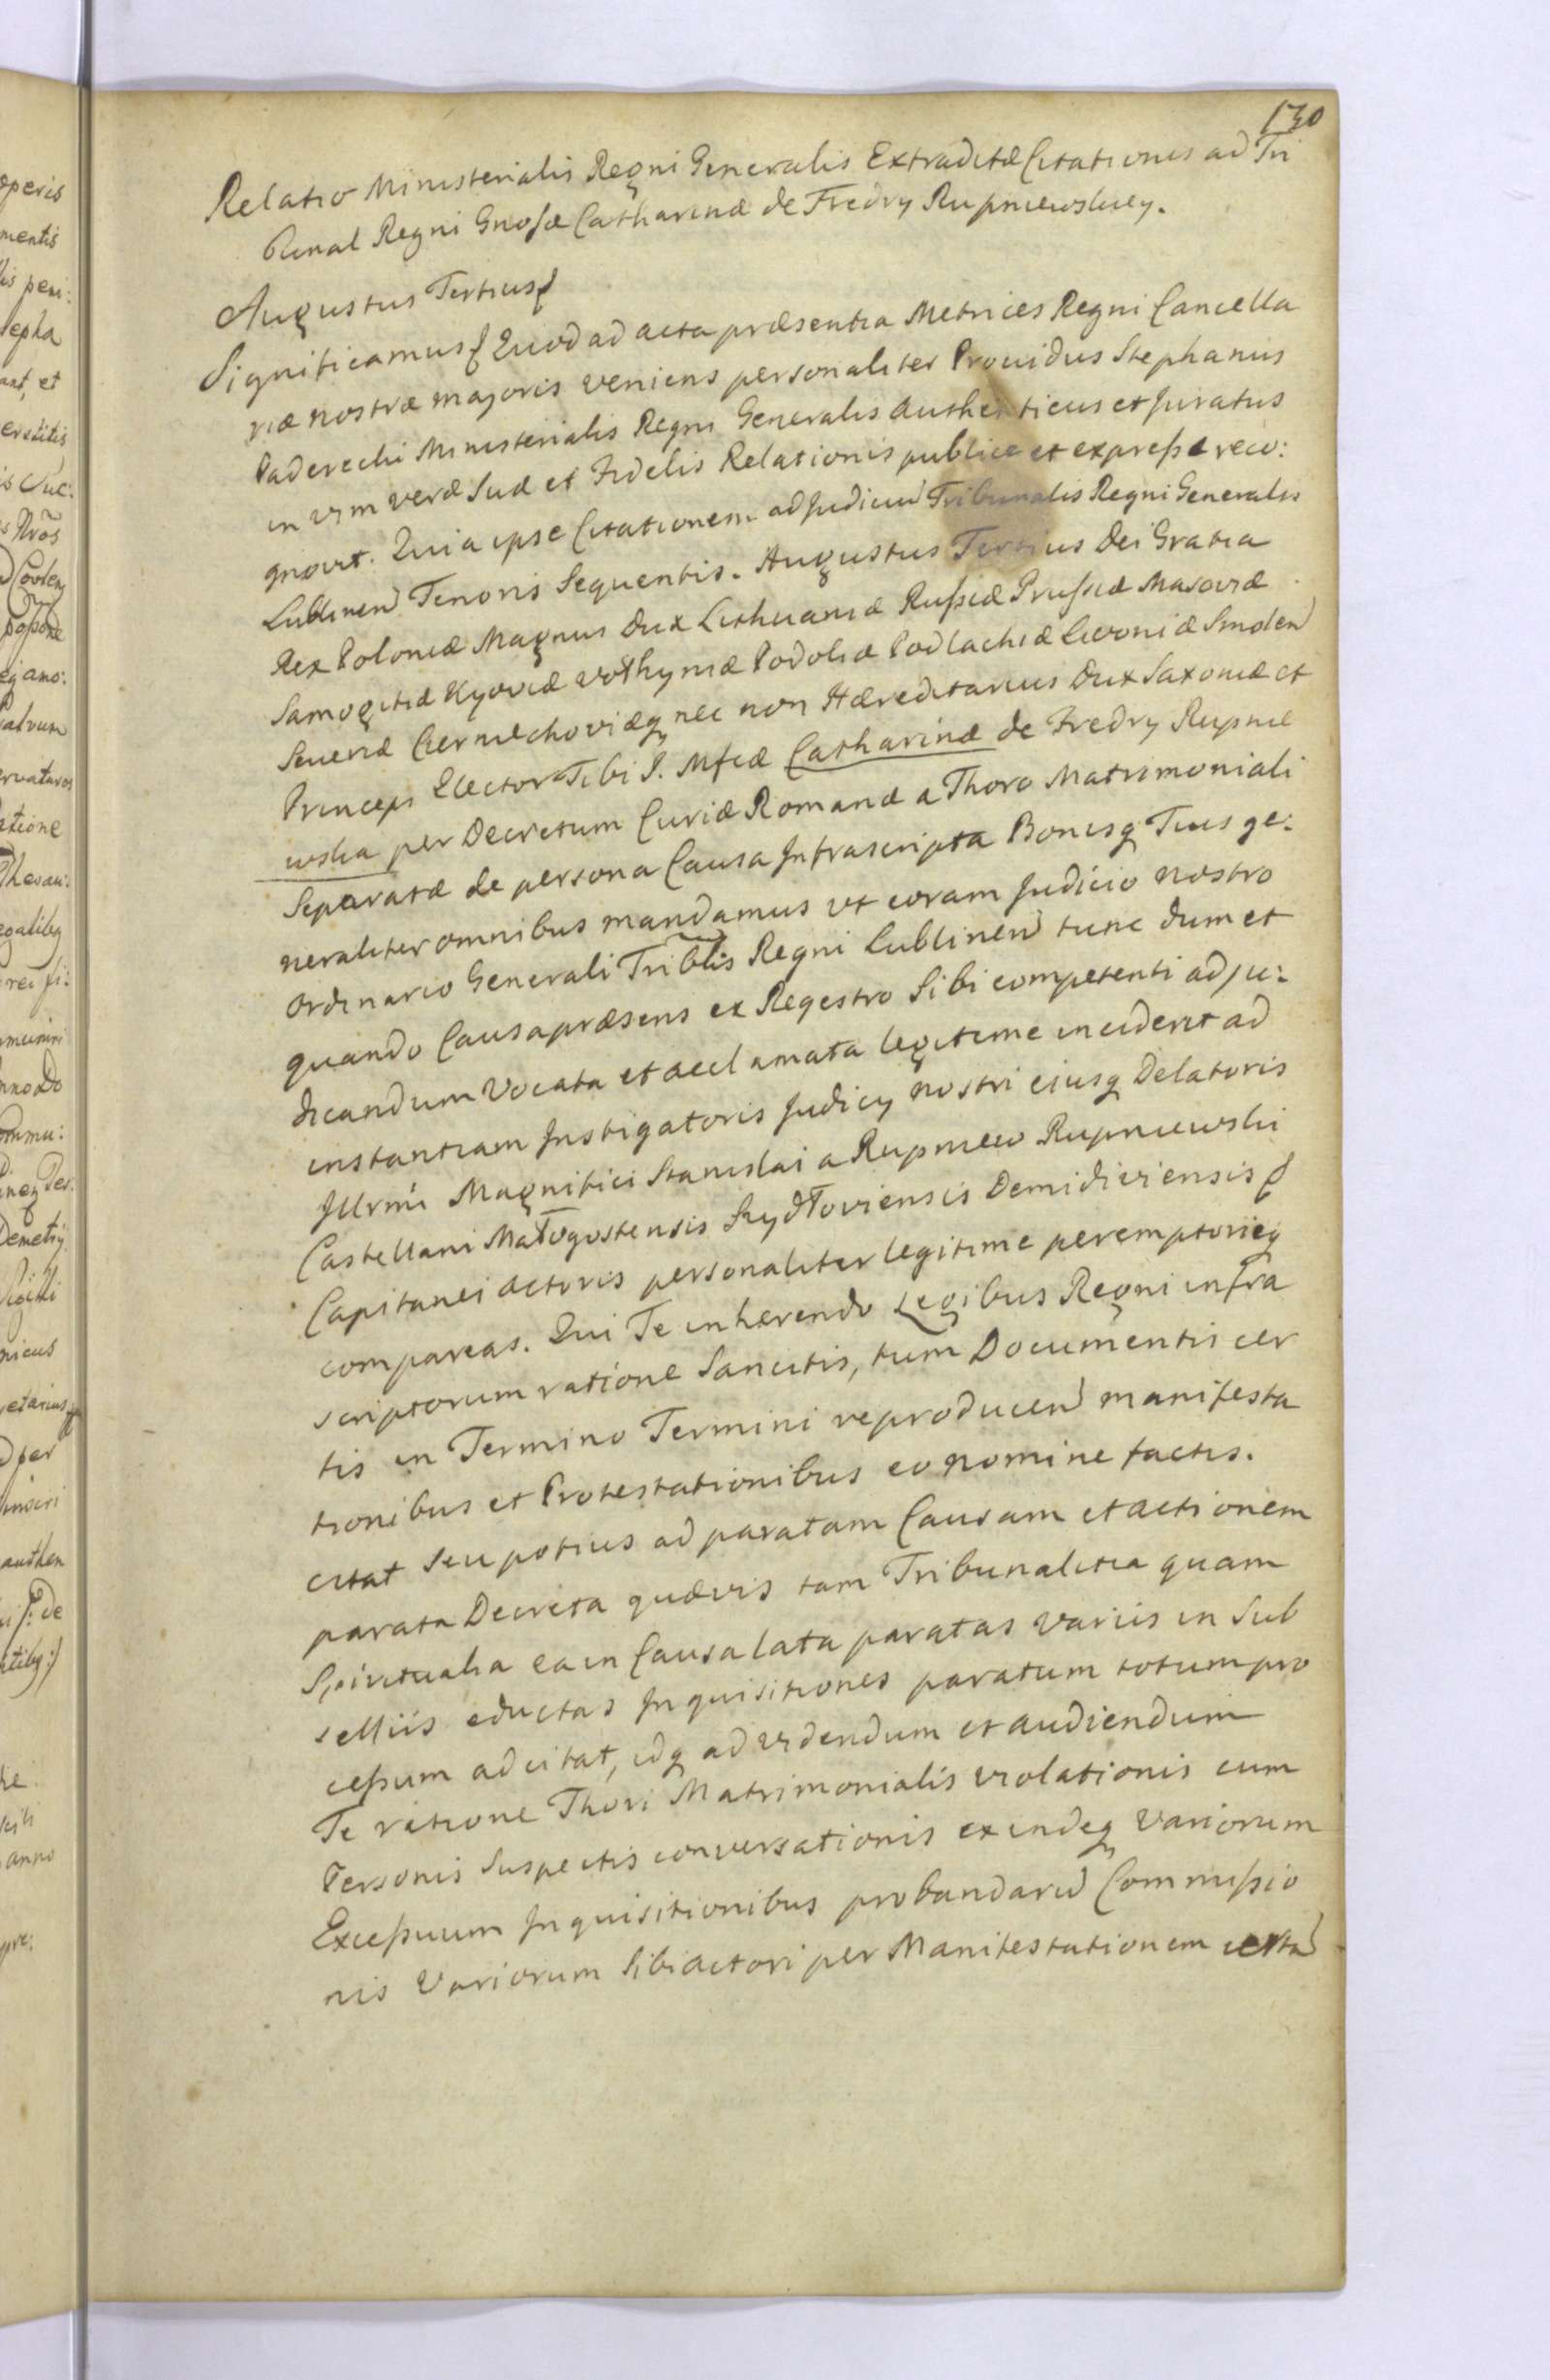 130
Relatio Ministerialis Regni Generalis Extraditæ Citationis ad Tri
bunal Regni Gnosæ Catharinæ de Fredry Rupniewskiey.
Augustus Tertius
Significamus Quod ad acta præsentia Metrices Regni Cancella
riæ nostræ majoris veniens personaliter Providus Stephanus
Paderecki Ministerialis Regni Generalis Authenticus et Juratus
in vim veræ suæ et Fidelis Relationis publice et expresse reco:
gnovit. Quia ipse Citationem ad Judicium Tribunalis Regni Generalis
Lublinen Tenoris Sequentis. Augustus Tertius Dei Gratia
Rex Poloniæ Magnus Dux Lithuaniæ Russiæ Prussiæ Masoviæ
Samogitiæ Kyoviæ Volhyniæ Podoliæ Podlachiæ Livoniæ Smolen
Severiæ Czerniechoviæq nec non Hæreditarius Dux Saxoniæ et
Princeps Elector Tibi G. Mfcæ Catharinæ de Fredry Rupnie
wska per Decretum Curiæ Romanæ a Thoro Matrimoniali
Separatæ de persona Causa Infrascripta Bonisq Tuis ge:
neraliter omnibus mandamus vt coram Judicio nostro
Ordinario Generali Triblis Regni Lublinen tunc dum et
quando Causa præsens ex Regestro sibi competenti adju:
dicandum vocata et acclamata legitime inciderit ad
instantiam Instigatoris Judicy nostri eiusq Delatoris
Jllrmi Magnifici Stanislai a Rupniew Rupniewski
Castellani Małogostensis Szydłoviensis Demidiviensis
Capitanei actoris personaliter legitime peremptorieq
compareas. Qui Te inherendo Legibus Regni infra
scriptorum ratione Sancitis, tum Documentis cer
tis in Termino Termini reproducen manifesta
tionibus et Protestationibus eo nomine factis.
citat seu potius ad paratam Causam et actionem
parata Decreta quævis tam Tribunalitia quam
Spiritualia ea in Causa lata paratas variis in Sub
selliis eductas Inquisitiones paratum totum pro
cessum adcitat, idq ad videndum et audiendum
Te ratione Thori Matrimonialis violationis cum
Personis suspectis conversationis exindeq variorum
Excessuum Inquisitionibus probandarum Commissio
nis variorum sibi actori per Manifestationem